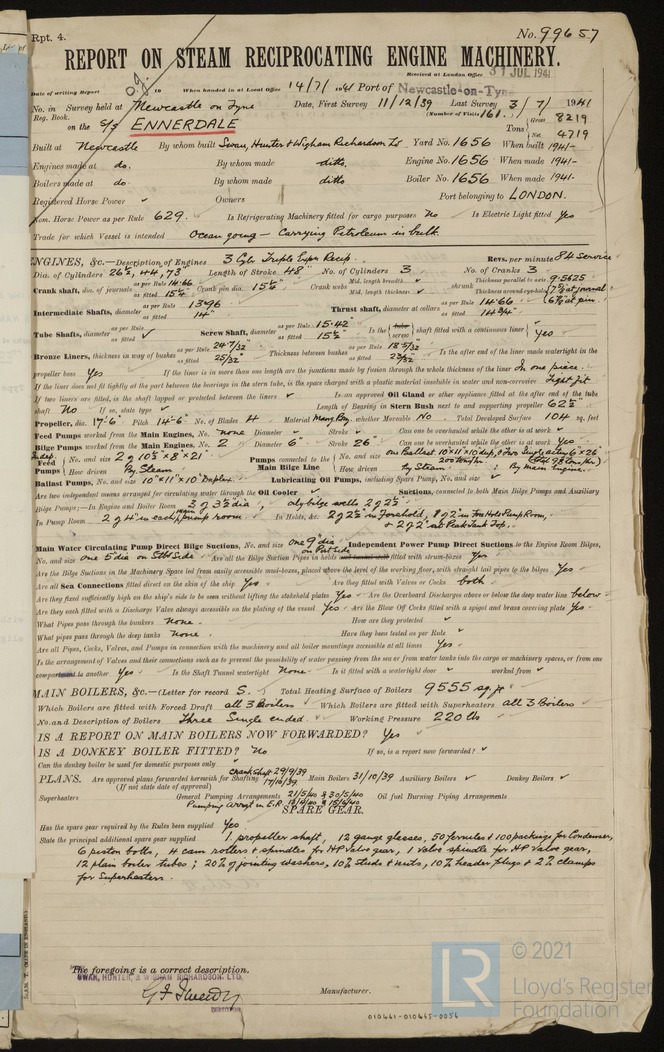 Rpt. 4.
No. 99657
REPORT ON STEAM RECIPROCATING ENGINE MACHINERY.
Received at London Office 31 JUL 1941
Date of writing Report 19 When handed in at Local Office 14/7/1941 Port of Newcastle-on-Tyne
No. in Survey held at Newcastle on Tyne Date, First Survey 11/12/39 Last Survey 3/7/1941
Reg. Book. (Number of Visits 161.)
on the S/S ENNERDALE Tons Gross 8219 Net 4719
Built at Newcastle By whom built Swan, Hunter & Wigham Richardson Ld Yard No. 1656 When built 1941-
Engines made at do. By whom made ditto. Engine No. 1656 When made 1941-
Boilers made at do By whom made ditto Boiler No. 1656 When made 1941-
Registered Horse Power ✓ Owners Port belonging to LONDON.
Nom. Horse Power as per Rule 629. Is Refrigerating Machinery fitted for cargo purposes No Is Electric Light fitted Yes
Trade for which Vessel is intended Ocean going - Carrying Petroleum in bulk.
ENGINES, &c.—Description of Engines 3 Cyl. Triple Expn Recip. Revs. per minute 84 service
Dia. of Cylinders 26½, 44, 73" Length of Stroke 48" No. of Cylinders 3 No. of Cranks 3
Crank shaft, dia. of journals as per Rule 14.66 as fitted 15¼" Crank pin dia. 15½" Crank webs Mid. length breadth ✓ Mid. length thickness ✓ shrunk Thickness parallel to axis 9.5625 Thickness around eye-hole
Intermediate Shafts, diameter as per Rule 13.96 as fitted 14" Thrust shaft, diameter at collars as per Rule 14.66 as fitted 14¾"
Tube Shafts, diameter as per Rule as fitted ✓ Screw Shaft, diameter as per Rule 15.42 as fitted 15½" Is the tube screw shaft fitted with a continuous liner Yes
Bronze Liners, thickness in way of bushes as per Rule 24.7/32" as fitted 25/32" Thickness between bushes as per Rule 18.5/32" as fitted 23/32" Is the after end of the liner made watertight in the
propeller boss Yes If the liner is in more than one length are the junctions made by fusion through the whole thickness of the liner In one piece.
If the liner does not fit tightly at the part between the bearings in the stern tube, is the space charged with a plastic material insoluble in water and non-corrosive Tight fit
If two liners are fitted, is the shaft lapped or protected between the liners ✓ Is an approved Oil Gland or other appliance fitted at the after end of the tube
shaft No If so, state type ✓ Length of Bearing in Stern Bush next to and supporting propeller 62½"
Propeller, dia. 17'-6" Pitch 14'-6" No. of Blades 4 Material Mang. Bry. whether Moveable No Total Developed Surface 104 sq. feet
Feed Pumps worked from the Main Engines, No. none Diameter ✓ Stroke ✓ Can one be overhauled while the other is at work ✓
Bilge Pumps worked from the Main Engines, No. 2 Diameter 6" Stroke 26" Can one be overhauled while the other is at work Yes
Indep. Feed Pumps No. and size 2 of 10½" x 8" x 21" How driven By Steam Pumps connected to the Main Bilge Line No. and size one Ballast 10"x11"x10" How driven by Steam : By Main Engine.
Ballast Pumps, No. and size 10"x11"x10" Duplex. Lubricating Oil Pumps, including Spare Pump, No. and size ✓
Are two independent means arranged for circulating water through the Oil Cooler ✓ Suctions, connected to both Main Bilge Pumps and Auxiliary
Bilge Pumps;—In Engine and Boiler Room 3 of 3½" dia, oily bilge wells 2 of 2½"
In Pump Room 2 of 4" in each main pump room. In Holds, &c. 2 of 2½" in Forehold, 2" in Fore Hold Pump Room,
& 2 of 2" at Peak Tank Top.
Main Water Circulating Pump Direct Bilge Suctions, No. and size one 9" dia on Port side Independent Power Pump Direct Suctions to the Engine Room Bilges,
No. and size one 5" dia on Stbd Side Are all the Bilge Suction Pipes in holds fitted with strum-boxes Yes
Are the Bilge Suctions in the Machinery Space led from easily accessible mud-boxes, placed above the level of the working floor, with straight tail pipes to the bilges Yes
Are all Sea Connections fitted direct on the skin of the ship Yes Are they fitted with Valves or Cocks both
Are they fixed sufficiently high on the ship's side to be seen without lifting the stokehold plates Yes Are the Overboard Discharges above or below the deep water line below
Are they each fitted with a Discharge Valve always accessible on the plating of the vessel Yes Are the Blow Off Cocks fitted with a spigot and brass covering plate Yes
What Pipes pass through the bunkers none. How are they protected ✓
What pipes pass through the deep tanks none. Have they been tested as per Rule ✓
Are all Pipes, Cocks, Valves, and Pumps in connection with the machinery and all boiler mountings accessible at all times Yes
Is the arrangement of Valves and their connections such as to prevent the possibility of water passing from the sea or from water tanks into the cargo or machinery spaces, or from one
compartment to another Yes Is the Shaft Tunnel watertight None. Is it fitted with a watertight door ✓ worked from ✓
MAIN BOILERS, &c.—(Letter for record S.) Total Heating Surface of Boilers 9555 sq. ft
Which Boilers are fitted with Forced Draft all 3 Boilers Which Boilers are fitted with Superheaters all 3 Boilers
No. and Description of Boilers Three Single ended. Working Pressure 220 lbs
IS A REPORT ON MAIN BOILERS NOW FORWARDED? Yes
IS A DONKEY BOILER FITTED? No If so, is a report now forwarded? ✓
Can the donkey boiler be used for domestic purposes only ✓
PLANS. Are approved plans forwarded herewith for Shafting Crank shaft 29/9/39 17/10/39 Main Boilers 31/10/39 Auxiliary Boilers ✓ Donkey Boilers ✓
(If not state date of approval)
Superheaters General Pumping Arrangements 21/5/40 & 30/5/40 Oil fuel Burning Piping Arrangements
Pumping arrgt in E.R.
SPARE GEAR.
Has the spare gear required by the Rules been supplied Yes
State the principal additional spare gear supplied 1 propeller shaft, 12 gauge glasses, 50 ferrules & 100 packings for Condenser,
6 piston bolts, 4 cam rollers & spindles for HP Valve gear, 1 valve spindle for HP Valve gear,
12 plain boiler tubes; 20% of jointing washers, 10% studs & nuts, 10% header plugs & 2% clamps
for Superheaters.
The foregoing is a correct description,
SWAN, HUNTER, & WIGHAM RICHARDSON, LTD.
G F Tweedy
DIRECTOR
Manufacturer.
010441-010465-0056
LR
© 2021
Lloyd's Register
Foundation